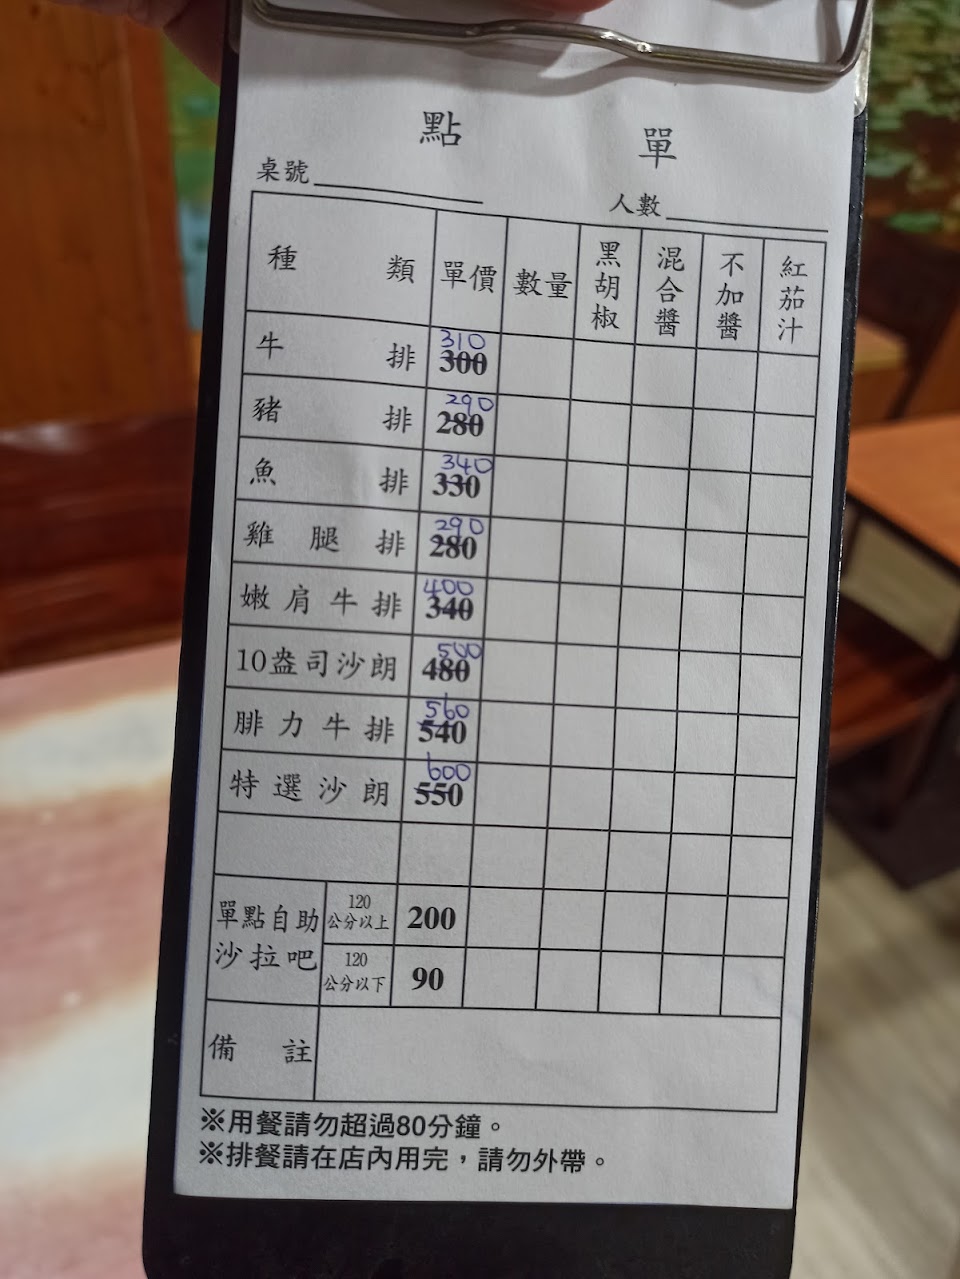 點 單
桌號 人數
種類 單價 數量 黑胡椒 混合醬 不加醬 紅茄汁
牛排 310 300
豬排 290 280
魚排 340 330
雞腿排 290 280
嫩肩牛排 400 340
10盎司沙朗 500 480
腓力牛排 560 540
特選沙朗 600 550
單點自助沙拉吧 120公分以上 200
120公分以下 90
備註
※用餐請勿超過80分鐘。
※排餐請在店內用完，請勿外帶。